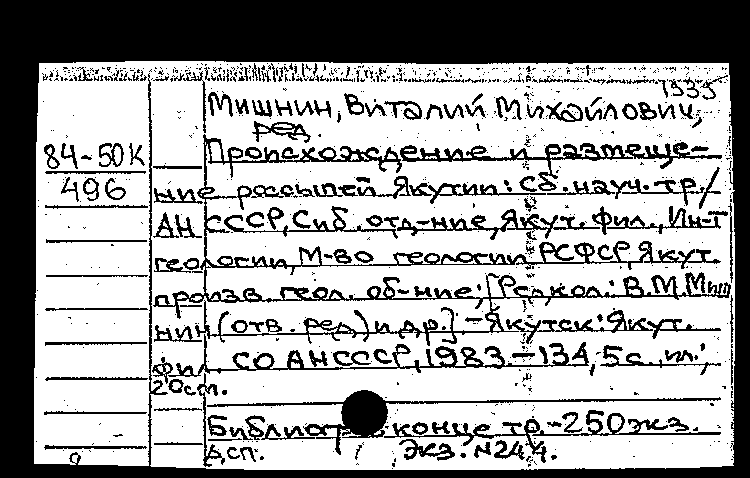 1935
Мишнин, Виталий Михайлович,
ред
84-50К
Происхождение и размеще-
496
ние россыпей Якутии: Сб. науч. тр./
АН СССР, Сиб. отд-ние, Якут. фил., Ин-т
геологии, М-во геологии РСФСР, Якут.
произв. геол. об-ние; [Редкол.: В.М.Миш
нин (отв. ред) и др.].-Якутск: Якут.
фил. СО АН СССР, 1983.-134,5с., ил.;
20см.
конце тр.-250экз.
Д,сп. Экз. №244.